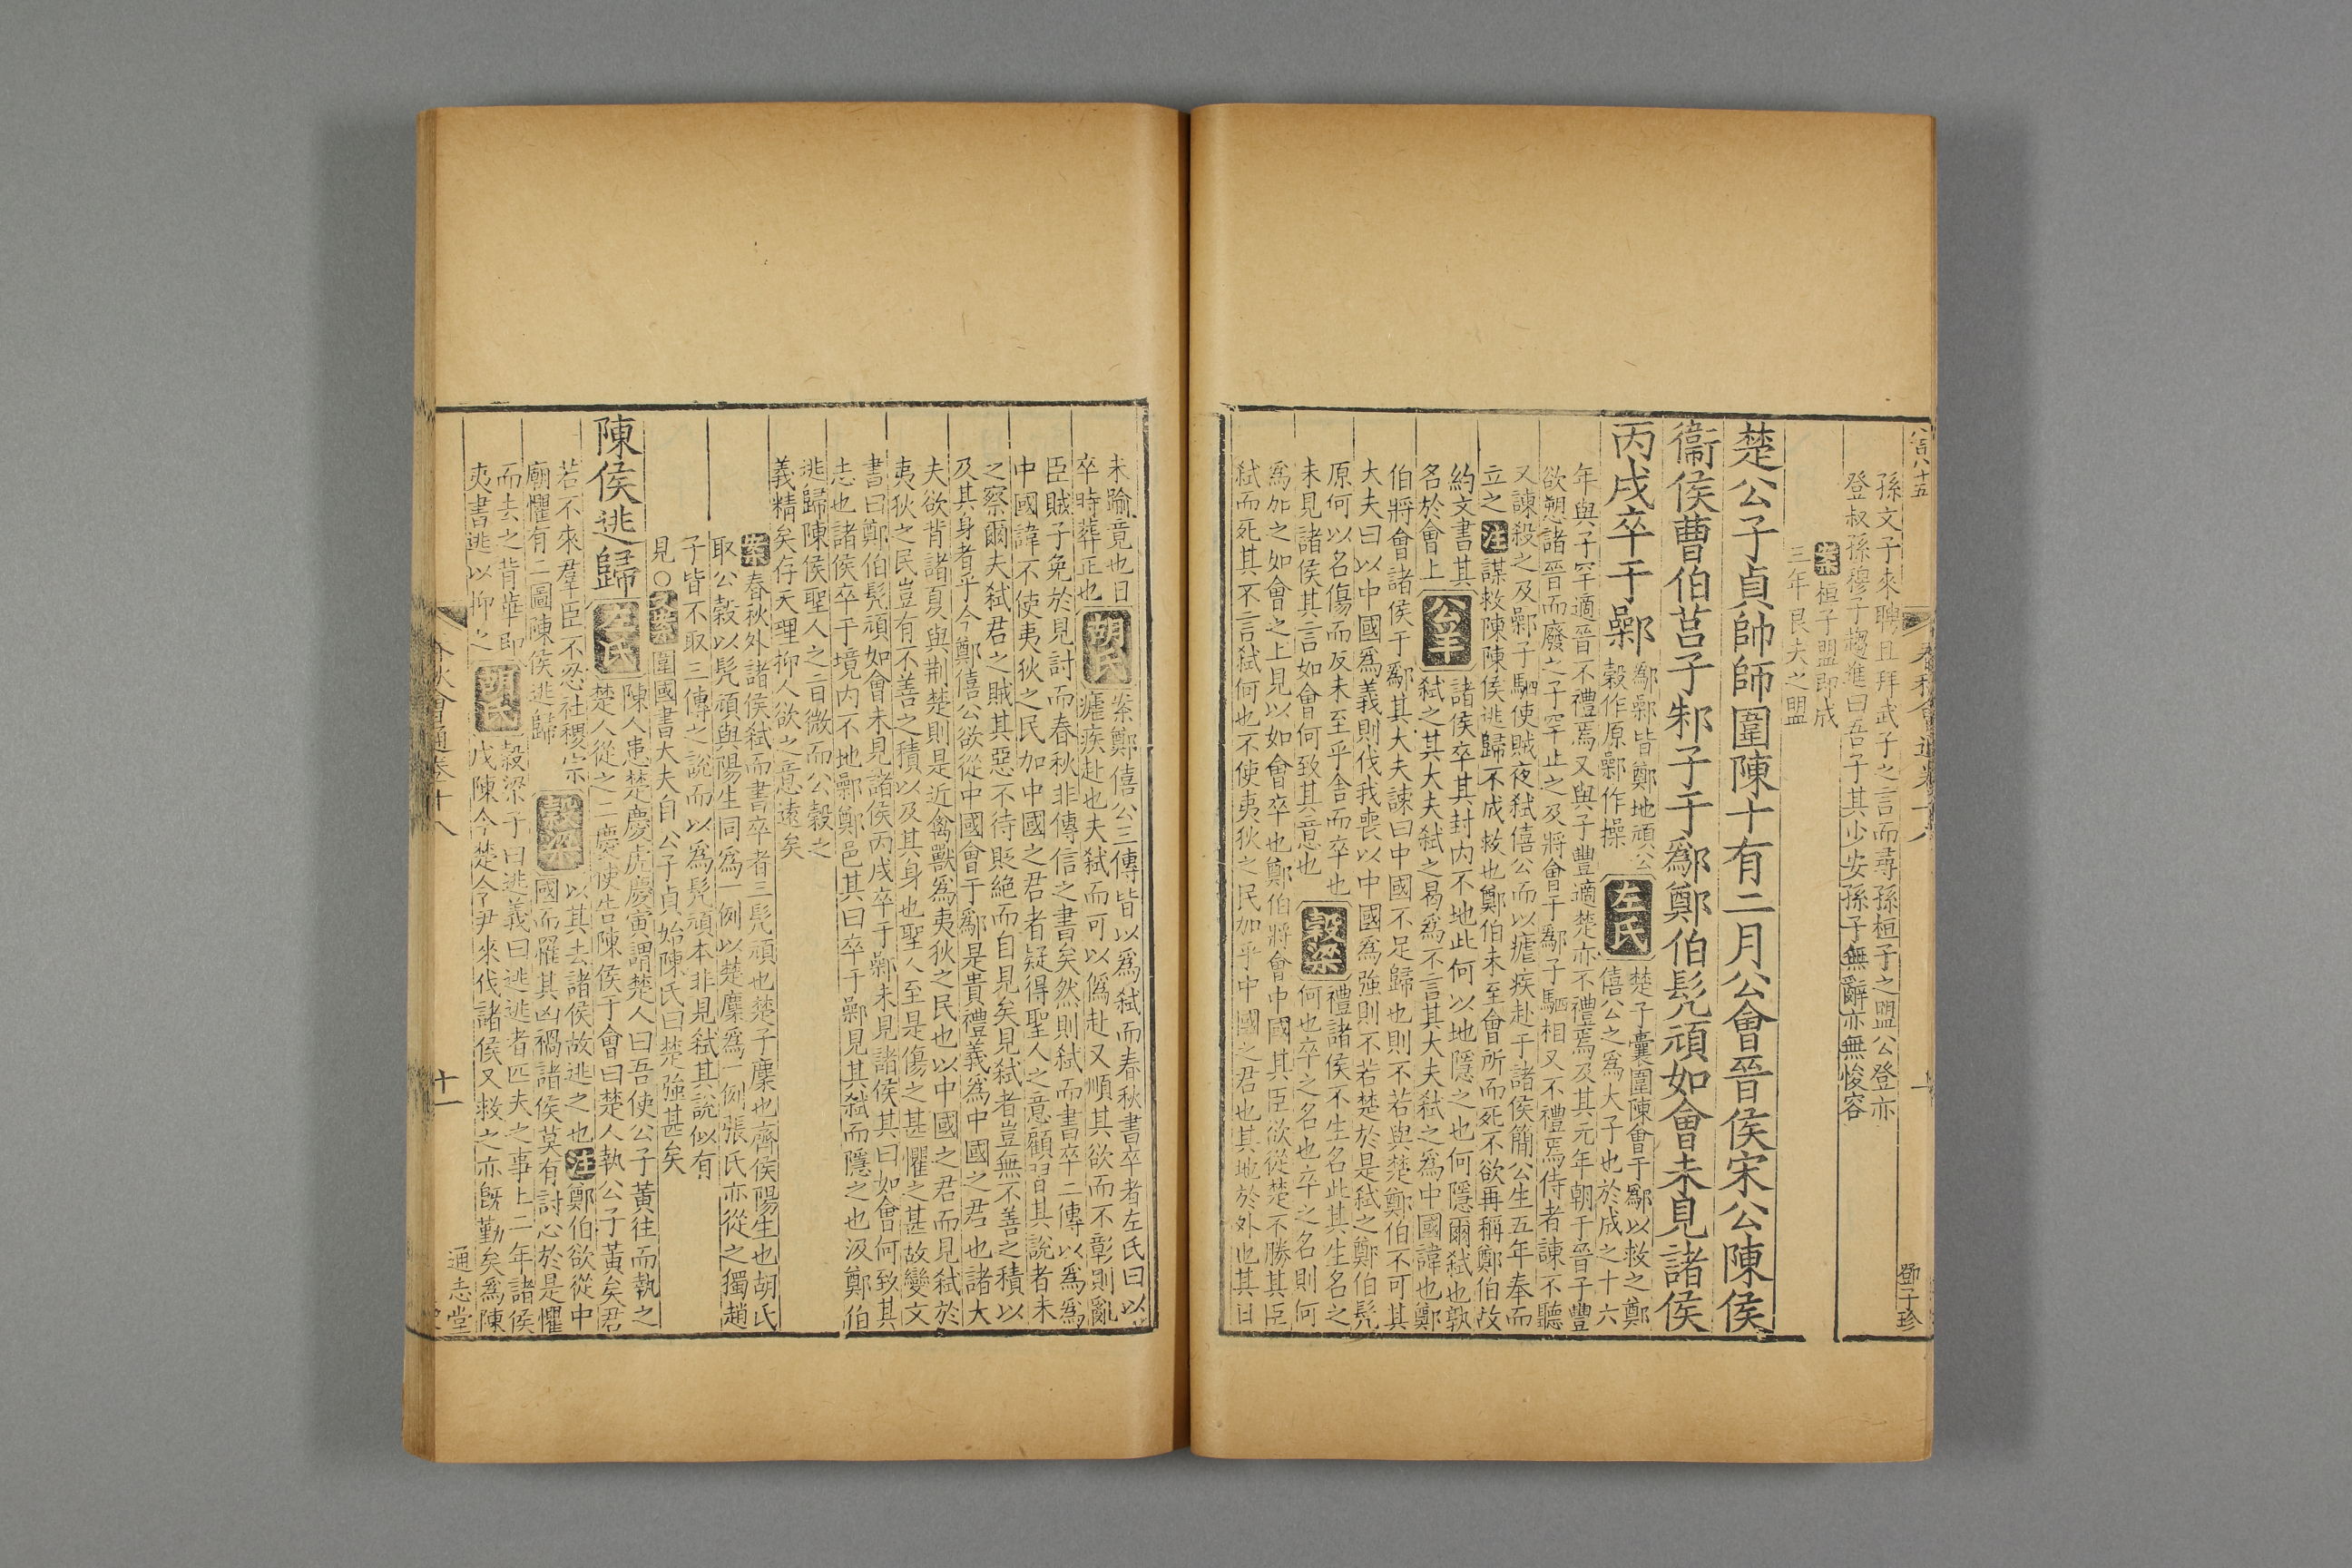 孫文子來聘且拜武子之言而尋孫桓子之盟公登亦
登叔孫穆子趨進曰吾子其少安孫子無辭亦無悛容
案桓子盟即成
三年良夫之盟
楚公子貞帥師圍陳十有二月公會晉侯宋公陳侯
衞侯曹伯莒子邾子于鄬鄭伯髠頑如會未見諸侯
丙戌卒于鄵
鄬鄵皆鄭地頑公
穀作原鄵作操
左氏
楚子囊圍陳會于鄬以救之鄭
僖公之爲大子也於成之十六
年與子罕適晉不禮焉又與子豐適楚亦不禮焉及其元年朝于晉子豐
欲愬諸晉而廢之子罕止之及將會于鄬子駟相又不禮焉侍者諫不聽
又諫殺之及鄵子駟使賊夜弑僖公而以瘧疾赴于諸侯簡公生五年奉而
立之注謀救陳陳侯逃歸不成救也鄭伯未至會所而死不欲再稱鄭伯故
約文書其
名於會上
公羊
諸侯卒其封内不地此何以地隱之也何隱爾弑也孰
弑之其大夫弑之曷爲不言其大夫弑之爲中國諱也鄭
伯將會諸侯于鄬其大夫諫曰中國不足歸也則不若與楚鄭伯不可其
大夫曰以中國爲義則伐我喪以中國爲強則不若楚於是弑之鄭伯髠
原何以名傷而反未至乎舍而卒也
未見諸侯其言如會何致其意也
穀梁
禮諸侯不生名此其生名之
何也卒之名也卒之名則何
爲加之如會之上見以如會卒也鄭伯將會中國其臣欲從楚不勝其臣
弑而死其不言弑何也不使夷狄之民加乎中國之君也其地於外也其日
未踰竟也日
卒時葬正也
胡氏
案鄭僖公三傳皆以爲弑而春秋書卒者左氏曰以
瘧疾赴也夫弑而可以僞赴又順其欲而不彰則亂
臣賊子免於見討而春秋非傳信之書矣然則弑而書卒二傳以爲爲
中國諱不使夷狄之民加中國之君者疑得聖人之意顧習其說者未
之察爾夫弑君之賊其惡不待貶絶而自見矣見弑者豈無不善之積以
及其身者乎今鄭僖公欲從中國會于鄬是貴禮義爲中國之君也諸大
夫欲背諸夏與荆楚則是近禽獸爲夷狄之民也以中國之君而見弑於
夷狄之民豈有不善之積以及其身也聖人至是傷之甚懼之甚故變文
書曰鄭伯髠頑如會未見諸侯丙戌卒于鄵未見諸侯其曰如會何致其
志也諸侯卒于境内不地鄵鄭邑其曰卒于鄵見其弑而隱之也汲鄭伯
逃歸陳侯聖人之旨微而公穀之
義精矣存天理抑人欲之意遠矣
案春秋外諸侯弑而書卒者三髠頑也楚子麇也齊侯陽生也胡氏
取公穀以髠頑與陽生同爲一例以楚麇爲一例張氏亦從之獨趙
子皆不取三傳之說而以爲髠頑本非見弑其說似有
見○又案圍國書大夫自公子貞始陳氏曰楚強甚矣
陳侯逃歸
左氏
陳人患楚慶虎慶寅謂楚人曰吾使公子黃往而執之
楚人從之二慶使告陳侯于會曰楚人執公子黃矣君
若不來羣臣不忍社稷宗
廟懼有二圖陳侯逃歸
穀梁
以其去諸侯故逃之也注鄭伯欲從中
國而罹其凶禍諸侯莫有討心於是懼
而去之背華即
夷書逃以抑之
胡氏
穀梁子曰逃義曰逃逃者匹夫之事上二年諸侯
戍陳今楚令尹來伐諸侯又救之亦既勤矣爲陳
春秋會通卷十八
十一
通志堂
鄧子珍